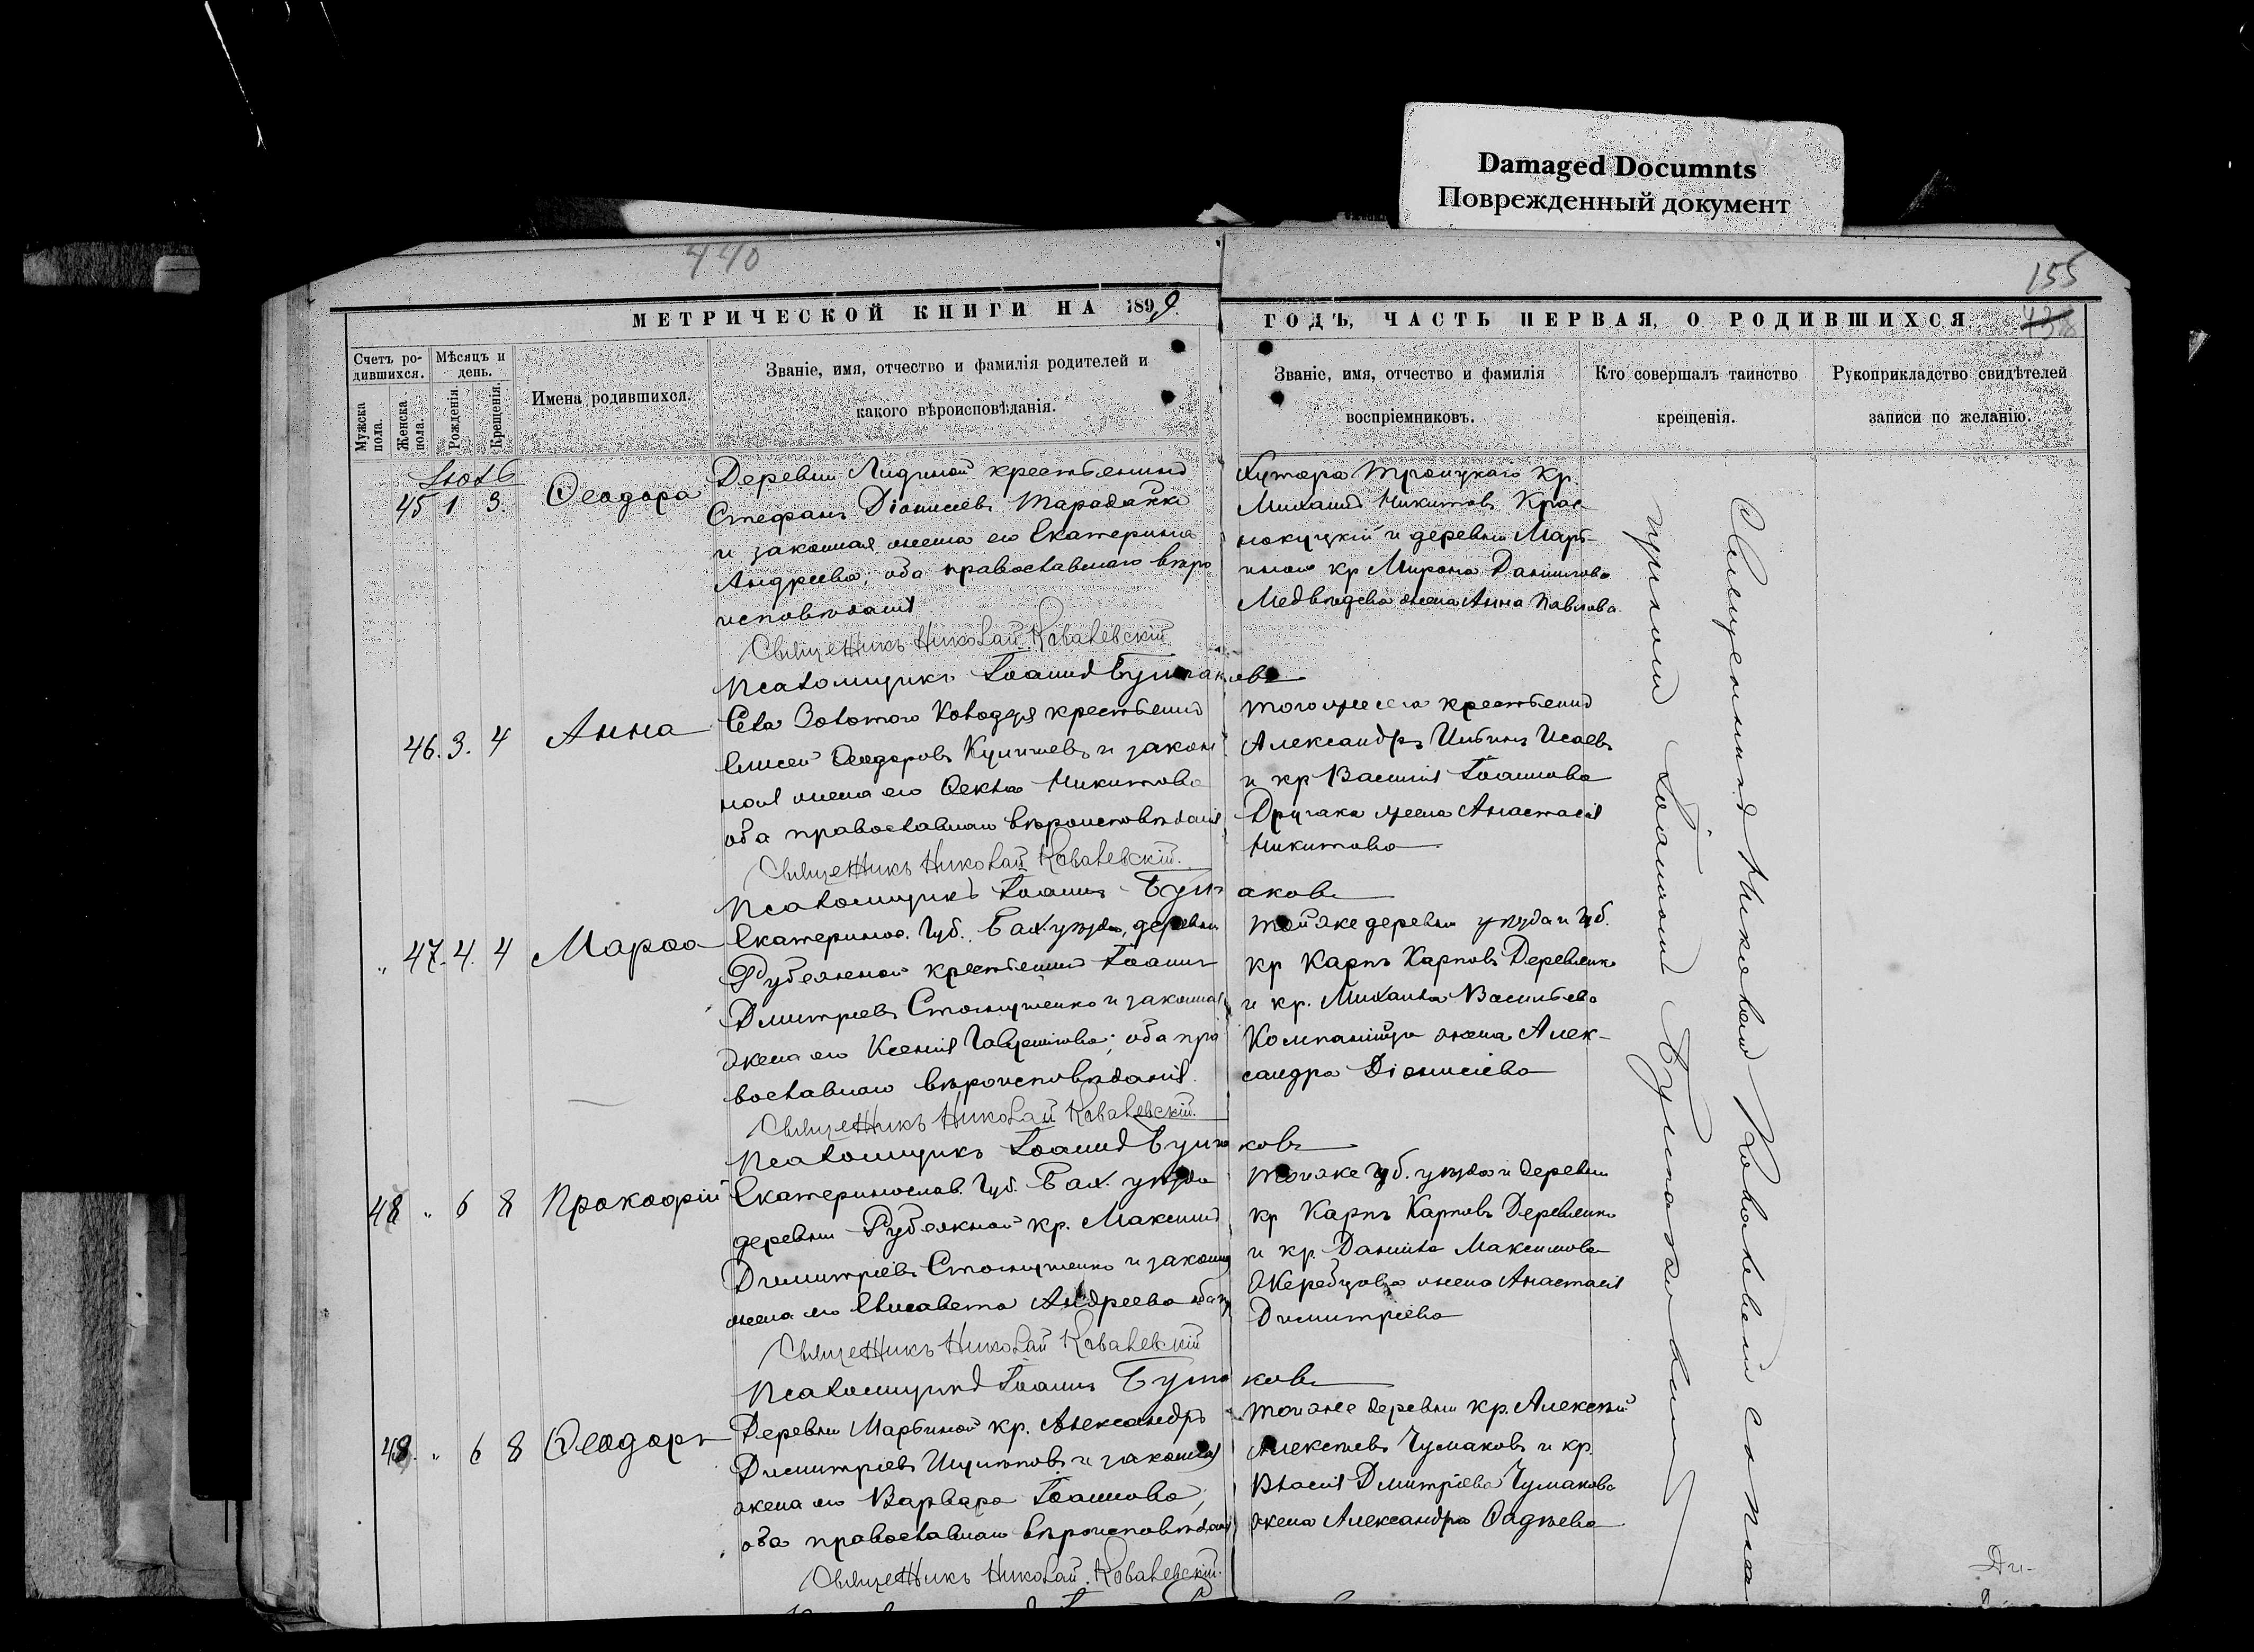 Damaged Documnts
Поврежденный документ
440
155
438
МЕТРИЧЕСКОЙ КНИГИ НА 1899.
ГОДЪ, ЧАСТЬ ПЕРВАЯ, О РОДИВШИХСЯ
Счетъ ро-
дившихся.
Мужска
пола.
Женска
пола.
Мѣсяцъ и
день.
Рожденія.
Крещенія.
Имена родившихся.
Званіе, имя, отчество и фамилія родителей и
какого вѣроисповѣданія.
Званіе, имя, отчество и фамилія
воспріемниковъ.
Кто совершалъ таинство
крещенія.
Рукоприкладство свидѣтелей
записи по желанію.
45 1 3. Ѳеодора
Деревни Лидиной крестьянинъ
Стефанъ Діонисіевъ Тарадайко
и законная жена его Екатерина
Андреева; оба православнаго вѣро
исповѣданія
Хутора Троицкаго кр.
Михаилъ Никитовъ Крас-
нокутскій и деревни Марь-
иной кр Мирона Даніилова
Медвѣдева жена Анна Павлова
Священникъ Николай Ковалевскій
Псаломщикъ Іоаннъ Булгаковъ
46. 3. 4 Анна
Села Золотого Колодезя крестьянинъ
Елисей Ѳеодоровъ и закон
ная жена его Ѳекла Никитова
оба православнаго вѣроисповѣданія
тогоже села крестьянинъ
Александръ Ильинъ Исаевъ
и кр Василія Іоаннова
жена Анастасія
Никитова
Священникъ Николай Ковалевскій.
Псаломщикъ Іоаннъ Булгаковъ
„ 47. 4. 4 Марѳа
Екатеринос. Губ. Бах. уѣзда, деревни
Рубежной крестьянинъ Іоаннъ
Дмитріевъ и законная
жена его Ксенія оба пра
вославнаго вѣроисповѣданія.
тойже деревни уѣзда и губ.
кр Карпъ Карповъ Деревенко
и кр. Михаила Васильева
Компанійца жена Алек-
сандра Діонисіева
Священникъ Николай Ковалевскій.
Псаломщикъ Іоаннъ Булгаковъ
48 „ 6 8 Прокофій
Екатеринослав. Губ. Бах. уѣзда
деревни Рубежной кр. Максимъ
Димитріевъ и законная
жена его Елисавета Андреева оба пр
тойже губ. уѣзда и деревни
кр Карпъ Карповъ Деревенко
и кр. Даніила Максимова
Жеребцова жена Анастасія
Димитріева
Священникъ Николай Ковалевскій
Псаломщикъ Іоаннъ Булгаковъ
48. „ 6 8 Ѳеодоръ
Деревни Марьиной кр. Александръ
Димитріевъ и законная
жена его Варвара Іоаннова;
оба православнаго вѣроисповѣданія
тойже деревни кр. Алексѣй
Алексѣевъ Чумаковъ и кр.
Власія Дмитріева Чумакова
жена Александра Ѳадѣева
Священникъ Николай Ковалевскій.
Священникъ Николай Ковалевскій съ Псал
щикомъ Іоанномъ Булгаковымъ